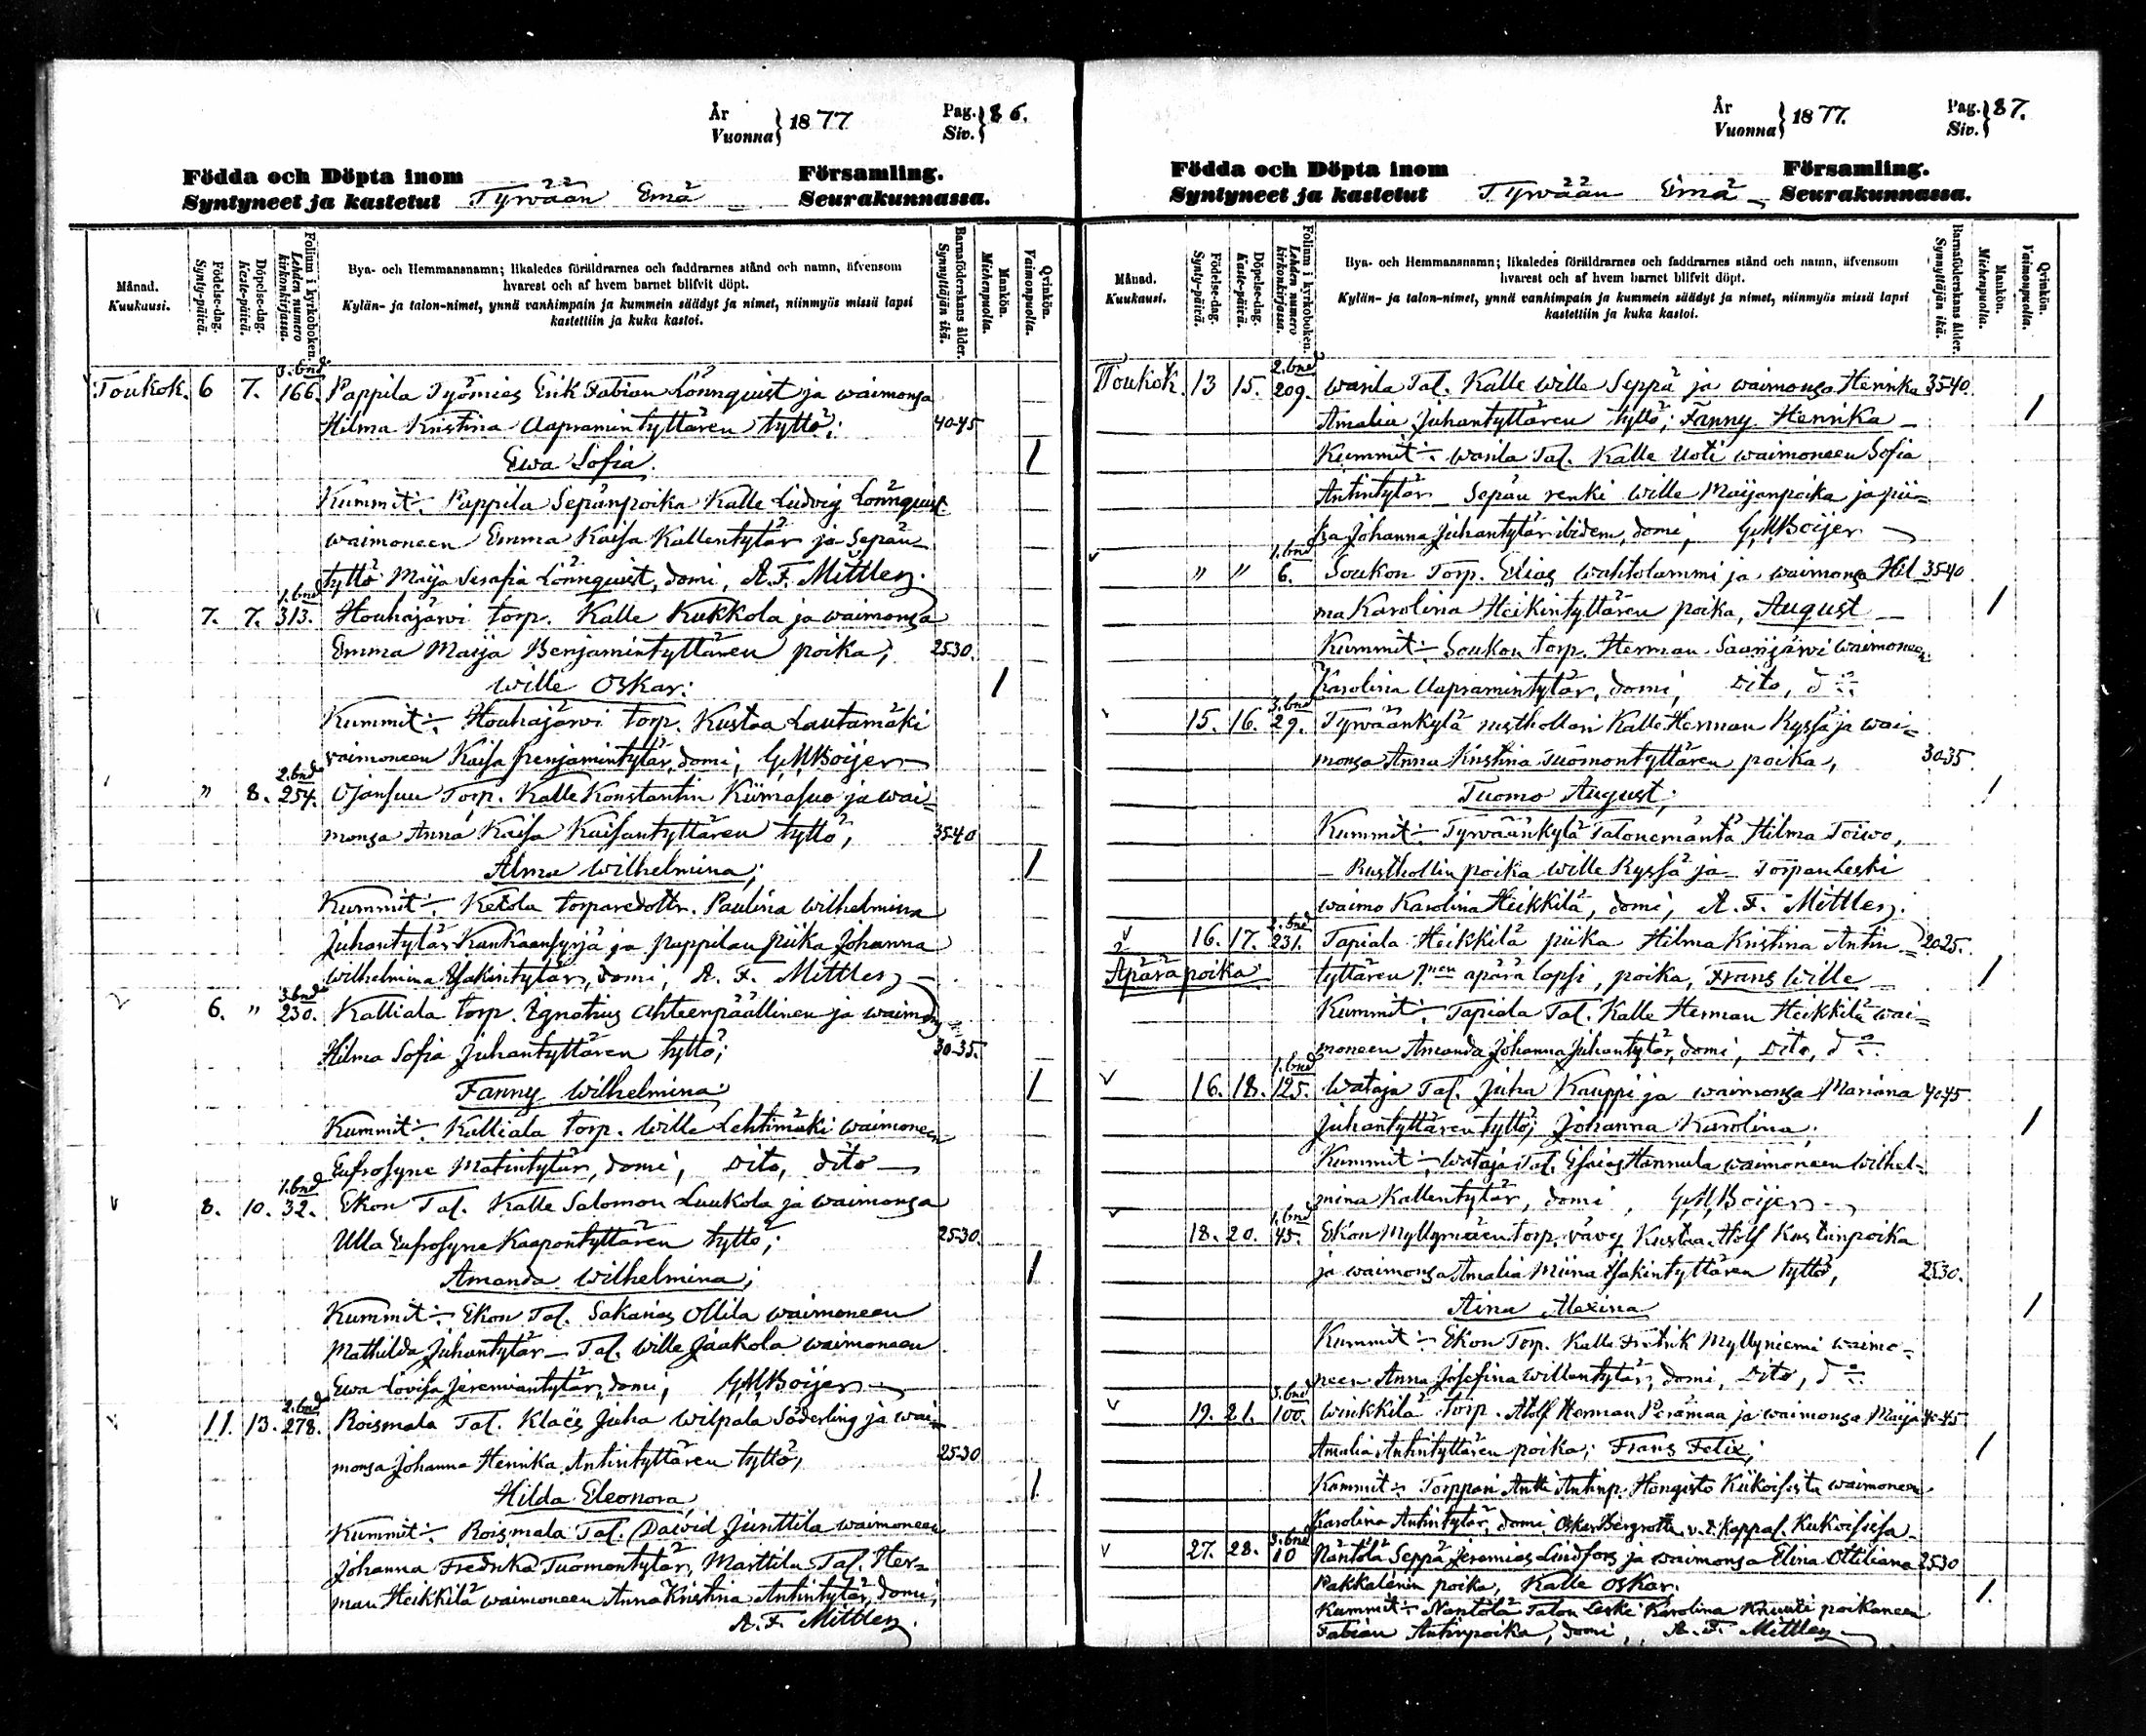 År
Vuonna } 1877
Pag.
Siv. } 86.
Födda och Döpta inom
Syntyneet ja kastetut Tyrvään Emä
Församling.
Seurakunnassa.
Månad.
Kuukausi.
Födelse-dag.
Synty-päivä.
Döpelse-dag.
Kaste-päivä.
Folium i kyrkoboken.
Lehden numero kirkonkirjassa.
Bya- och Hemmansnamn; likaledes föräldrarnes och faddrarnes stånd och namn, äfvensom
hvarest och af hvem barnet blifvit döpt.
Kylän- ja talon-nimet, ynnä vanhimpain ja kummein säädyt ja nimet, niinmyös missä lapsi
kastettiin ja kuka kastoi.
Barnaföderskans ålder.
Synnyttäjän ikä.
Mankön.
Miehenpuolia.
Qvinkön.
Vaimonpuolia.
3. bnd
Toukok. 6 7. 166. Pappila Työmies Erik Fabian Lönnquist ja waimonsa
Hilma Kristina Aapramintyttären tyttö; 40-45
Ewa Sofia. 1
Kummit:- Pappila Sepänpoika Kalle Ludvig Lönnquist
waimoneen Emma Kaisa Kallentytär ja Sepän
tyttö Maija Serafia Lönnquist, domi, A. F. Mittler.
1. bnd
7. 7. 313. Houhajärvi torp. Kalle Kukkola ja waimonsa
Emma Maija Benjamintyttären poika; 25-30.
Wille Oskar: 1
Kummit:- Houhajärvi torp. Kustaa Lautamäki
vaimoneen Kaisa Benjamintytär, domi, G M Boijer
2. bnd
" 8. 254. Ojansuu Torp. Kalle Konstantin Kiimasuo ja wai=
monsa Anna Kaisa Kaisantyttären tyttö, 35-40
Alma Wilhelmina; 1
Kummit:- Ketola torparedottr. Paulina Wilhelmina
Juhantytär Kankaansyrjä ja pappilan piika Johanna
Wilhelmina Isakintytär, domi, A. F. Mittler
3. bnd
6. " 230. Kalliala torp. Ignatius Ahteenpäällinen ja waimonsa
Hilma Sofia Juhantyttären tyttö; 30-35.
Fanny Wilhelmina: 1
Kummit:- Kalliala torp. Wille Lehtimäki waimoneen
Eufrosyne Matintytär, domi, Dito, dito
1. bnd
8. 10. 32. Ekon Tal. Kalle Salomon Luukola ja waimonsa
Ulla Eufrosyne Kaapontyttären tyttö; 25-30.
Amanda Wilhelmina; 1
Kummit:- Ekon Tal. Sakarias Ollila waimoneen
Mathilda Juhantytär - Tal. Wille Jaakola waimoneen
Ewa Lovisa Jeremiantytär, domi, G M Boijer
2. bnd
11. 13. 278. Roismala Tal. Klaës Juha Wilpala Söderling ja wai=
monsa Johanna Henrika Antintyttären tyttö, 25-30
Hilda Eleonora, 1
Kummit:- Roismala Tal. Dawid Junttila waimoneen
Johanna Fredrika Tuomontytär, Marttila Tal. Her=
man Heikkilä waimoneen Anna Kristina Antintytär, domi,
A. F. Mittler.
År
Vuonna } 1877.
Pag.
Siv. } 87.
Födda och Döpta inom
Syntyneet ja kastetut Tyrvään Emä
Församling.
Seurakunnassa.
Månad.
Kuukausi.
Födelse-dag.
Synty-päivä.
Döpelse-dag.
Kaste-päivä.
Folium i kyrkoboken.
Lehden numero kirkonkirjassa.
Bya- och Hemmansnamn; likaledes föräldrarnes och faddrarnes stånd och namn, äfvensom
hvarest och af hvem barnet blifvit döpt.
Kylän- ja talon-nimet, ynnä vanhimpain ja kummein säädyt ja nimet, niinmyös missä lapsi
kastettiin ja kuka kastoi.
Barnaföderskans ålder.
Synnyttäjän ikä.
Mankön.
Miehenpuolia.
Qvinkön.
Vaimonpuolia.
2. bnd
Toukok. 13 15. 209. Warila Tal. Kalle Wille Seppä ja waimonsa Henrika 35-40.
Amalia Juhantyttären tyttö; Fanny Henrika 1
Kummit:- Warila Tal. Kalle Uoti waimoneen Sofia
Antintytär Sepän renki Wille Maijanpoika ja pii=
ka Johanna Juhantytär ibidem, domi, G M Boijer
1. bnd
" " 6. Soukon Torp. Elias Wahtolammi ja waimonsa Hil 35-40
ma Karolina Heikintyttären poika, August 1
Kummit:- Soukon torp. Herman Saarijärvi waimoneen
Karolina Aapramintytär, domi, Dito, do
3. bnd
15. 16. 29. Tyrväänkylä rusthollari Kalle Herman Ryssä ja wai=
monsa Anna Kristina Tuomontyttären poika, 30-35.
Tuomo August; 1
Kummit:- Tyrväänkylä Talonemäntä Hilma Toiwo,
Rusthollin poika Wille Ryssä ja Torpan Leski
waimo Karolina Heikkilä, domi, A. F. Mittler.
2. bnd
16. 17. 231. Tapiala Heikkilä piika Hilma Kristina Antin= 20-25.
Äpäräpoika tyttären 1:nen äpärä lapsi, poika, Frans Wille 1
Kummit:- Tapiala Tal. Kalle Herman Heikkilä wai=
moneen Amanda Johanna Juhantytär, domi, Dito, do
1. bnd
16. 18. 125. Wataja Tal. Juha Kauppi ja waimonsa Mariana 40-45
Juhantyttären tyttö; Johanna Karolina. 1
Kummit:- Wataja Tal. Esaias Hannula waimoneen Wilhel=
mina Kallentytär, domi, G M Boijer
1. bnd
18. 20. 45. Ekon Myllyniemen torp. vävy Kustaa Adolf Kustinpoika
ja waimonsa Amalia Miina Isakintyttären tyttö, 25-30.
Aina Alexina 1
Kummit:- Ekon Torp. Kalle Fredrik Myllyniemi waimo=
neen Anna Josefina Willentytär, domi, Dito, do
3. bnd
19. 21. 100. Winkkilä Torp. Adolf Herman Perämaa ja waimonsa Maija 40-45
Amalia Antintyttären poika; Frans Felix; 1
Kummit:- Torppari Antti Antinp. Hongisto Kiikoisista waimoneen
Karolina Antintytär, domi, Oskar Bergroth, v. t. Kappal. Kiikoisissa
3. bnd
27. 28. 10 Näntölä Seppä Jeremias Lindfors ja waimonsa Elina Ottiliana 25-30
Pakkalenin poika, Kalle Oskar. 1.
Kummit:- Näntölä Talon Leski Karolina Knuuti poikaneen
Fabian Antinpoika, domi, A. F. Mittler